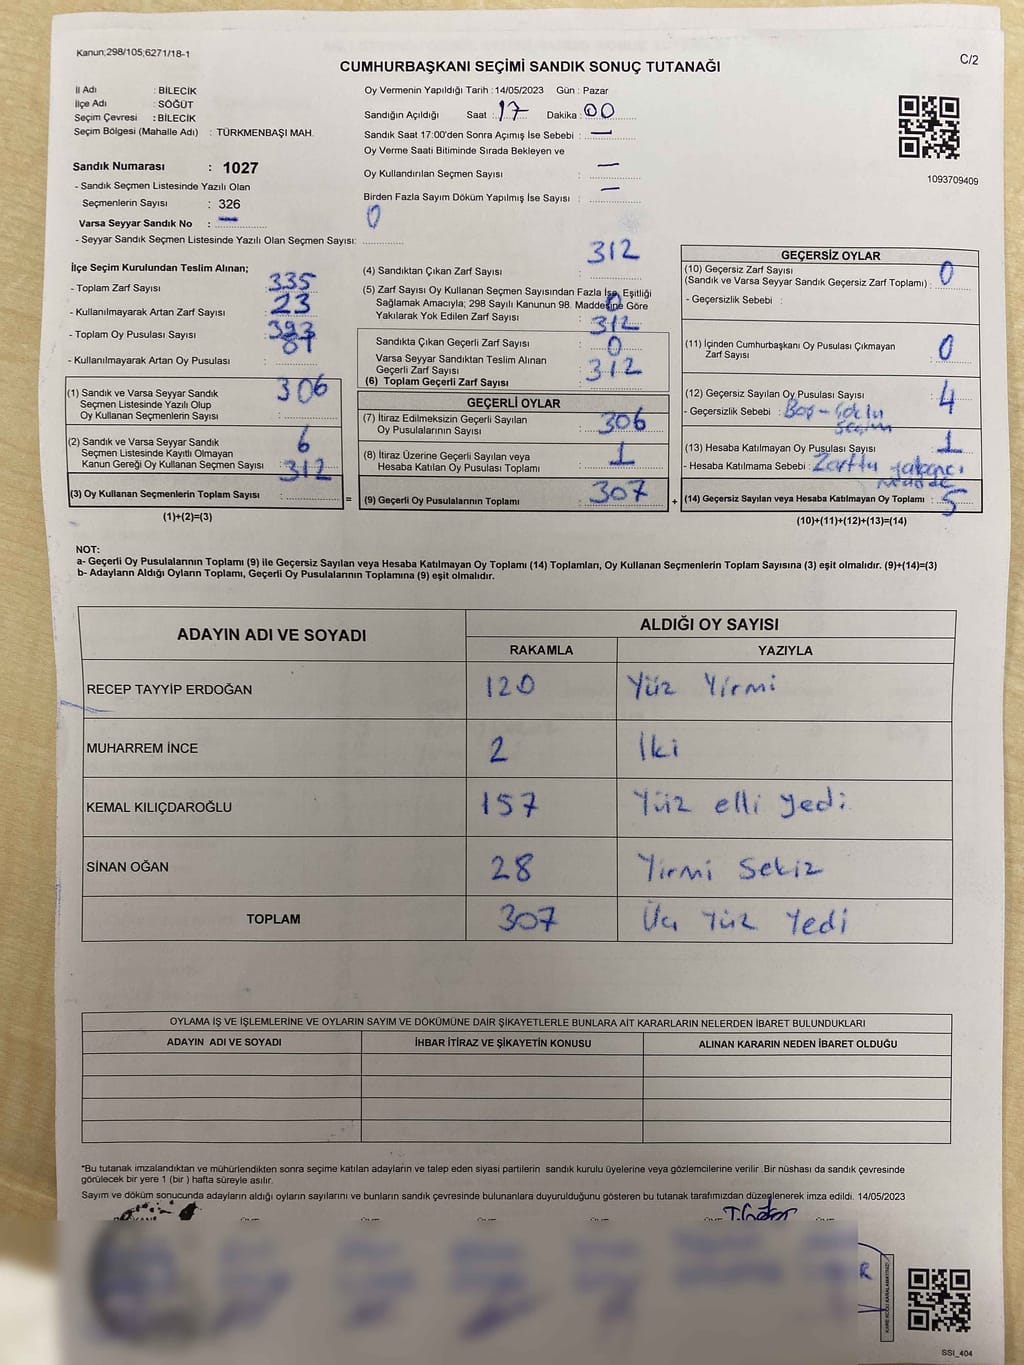 Kanun;298/105;6271/18-1
C/2
CUMHURBAŞKANI SEÇİMİ SANDIK SONUÇ TUTANAĞI
İl Adı : BİLECİK
İlçe Adı : SÖĞÜT
Seçim Çevresi : BİLECİK
Seçim Bölgesi (Mahalle Adı) : TÜRKMENBAŞI MAH.
Sandık Numarası : 1027
- Sandık Seçmen Listesinde Yazılı Olan
Seçmenlerin Sayısı : 326
Varsa Seyyar Sandık No : —
- Seyyar Sandık Seçmen Listesinde Yazılı Olan Seçmen Sayısı: 0
Oy Vermenin Yapıldığı Tarih : 14/05/2023 Gün : Pazar
Sandığın Açıldığı Saat : 17 Dakika : 00
Sandık Saat 17:00'den Sonra Açımış İse Sebebi : —
Oy Verme Saati Bitiminde Sırada Bekleyen ve
Oy Kullandırılan Seçmen Sayısı : —
Birden Fazla Sayım Döküm Yapılmış İse Sayısı : —
1093709409
İlçe Seçim Kurulundan Teslim Alınan;
- Toplam Zarf Sayısı : 335
- Kullanılmayarak Artan Zarf Sayısı : 23
- Toplam Oy Pusulası Sayısı : 393
- Kullanılmayarak Artan Oy Pusulası : 81
(1) Sandık ve Varsa Seyyar Sandık
Seçmen Listesinde Yazılı Olup
Oy Kullanan Seçmenlerin Sayısı : 306
(2) Sandık ve Varsa Seyyar Sandık
Seçmen Listesinde Kayıtlı Olmayan
Kanun Gereği Oy Kullanan Seçmen Sayısı : 6
(3) Oy Kullanan Seçmenlerin Toplam Sayısı : 312
(1)+(2)=(3)
=
(4) Sandıktan Çıkan Zarf Sayısı : 312
(5) Zarf Sayısı Oy Kullanan Seçmen Sayısından Fazla İse, Eşitliği
Sağlamak Amacıyla; 298 Sayılı Kanunun 98. Maddesine Göre
Yakılarak Yok Edilen Zarf Sayısı : 0
Sandıkta Çıkan Geçerli Zarf Sayısı : 312
Varsa Seyyar Sandıktan Teslim Alınan
Geçerli Zarf Sayısı : 0
(6) Toplam Geçerli Zarf Sayısı : 312
GEÇERLİ OYLAR
(7) İtiraz Edilmeksizin Geçerli Sayılan
Oy Pusulalarının Sayısı : 306
(8) İtiraz Üzerine Geçerli Sayılan veya
Hesaba Katılan Oy Pusulası Toplamı : 1
(9) Geçerli Oy Pusulalarının Toplamı : 307
+
GEÇERSİZ OYLAR
(10) Geçersiz Zarf Sayısı
(Sandık ve Varsa Seyyar Sandık Geçersiz Zarf Toplamı) : 0
- Geçersizlik Sebebi :
(11) İçinden Cumhurbaşkanı Oy Pusulası Çıkmayan
Zarf Sayısı : 0
(12) Geçersiz Sayılan Oy Pusulası Sayısı : 4
- Geçersizlik Sebebi : Boş - Çoklu
Seçim
(13) Hesaba Katılmayan Oy Pusulası Sayısı : 1
- Hesaba Katılmama Sebebi : Zarfta yabancı
madde
(14) Geçersiz Sayılan veya Hesaba Katılmayan Oy Toplamı : 5
(10)+(11)+(12)+(13)=(14)
NOT:
a- Geçerli Oy Pusulalarının Toplamı (9) ile Geçersiz Sayılan veya Hesaba Katılmayan Oy Toplamı (14) Toplamları, Oy Kullanan Seçmenlerin Toplam Sayısına (3) eşit olmalıdır. (9)+(14)=(3)
b- Adayların Aldığı Oyların Toplamı, Geçerli Oy Pusulalarının Toplamına (9) eşit olmalıdır.
ADAYIN ADI VE SOYADI ALDIĞI OY SAYISI
RAKAMLA YAZIYLA
RECEP TAYYİP ERDOĞAN 120 Yüz Yirmi
MUHARREM İNCE 2 İki
KEMAL KILIÇDAROĞLU 157 Yüz elli yedi
SİNAN OĞAN 28 Yirmi Sekiz
TOPLAM 307 Üç Yüz Yedi
OYLAMA İŞ VE İŞLEMLERİNE VE OYLARIN SAYIM VE DÖKÜMÜNE DAİR ŞİKAYETLERLE BUNLARA AİT KARARLARIN NELERDEN İBARET BULUNDUKLARI
ADAYIN ADI VE SOYADI İHBAR İTİRAZ VE ŞİKAYETİN KONUSU ALINAN KARARIN NEDEN İBARET OLDUĞU
*Bu tutanak imzalandıktan ve mühürlendikten sonra seçime katılan adayların ve talep eden siyasi partilerin sandık kurulu üyelerine veya gözlemcilerine verilir .Bir nüshası da sandık çevresinde
görülecek bir yere 1 (bir ) hafta süreyle asılır.
Sayım ve döküm sonucunda adayların aldığı oyların sayılarını ve bunların sandık çevresinde bulunanlara duyurulduğunu gösteren bu tutanak tarafımızdan düzenlenerek imza edildi. 14/05/2023
SSI_404